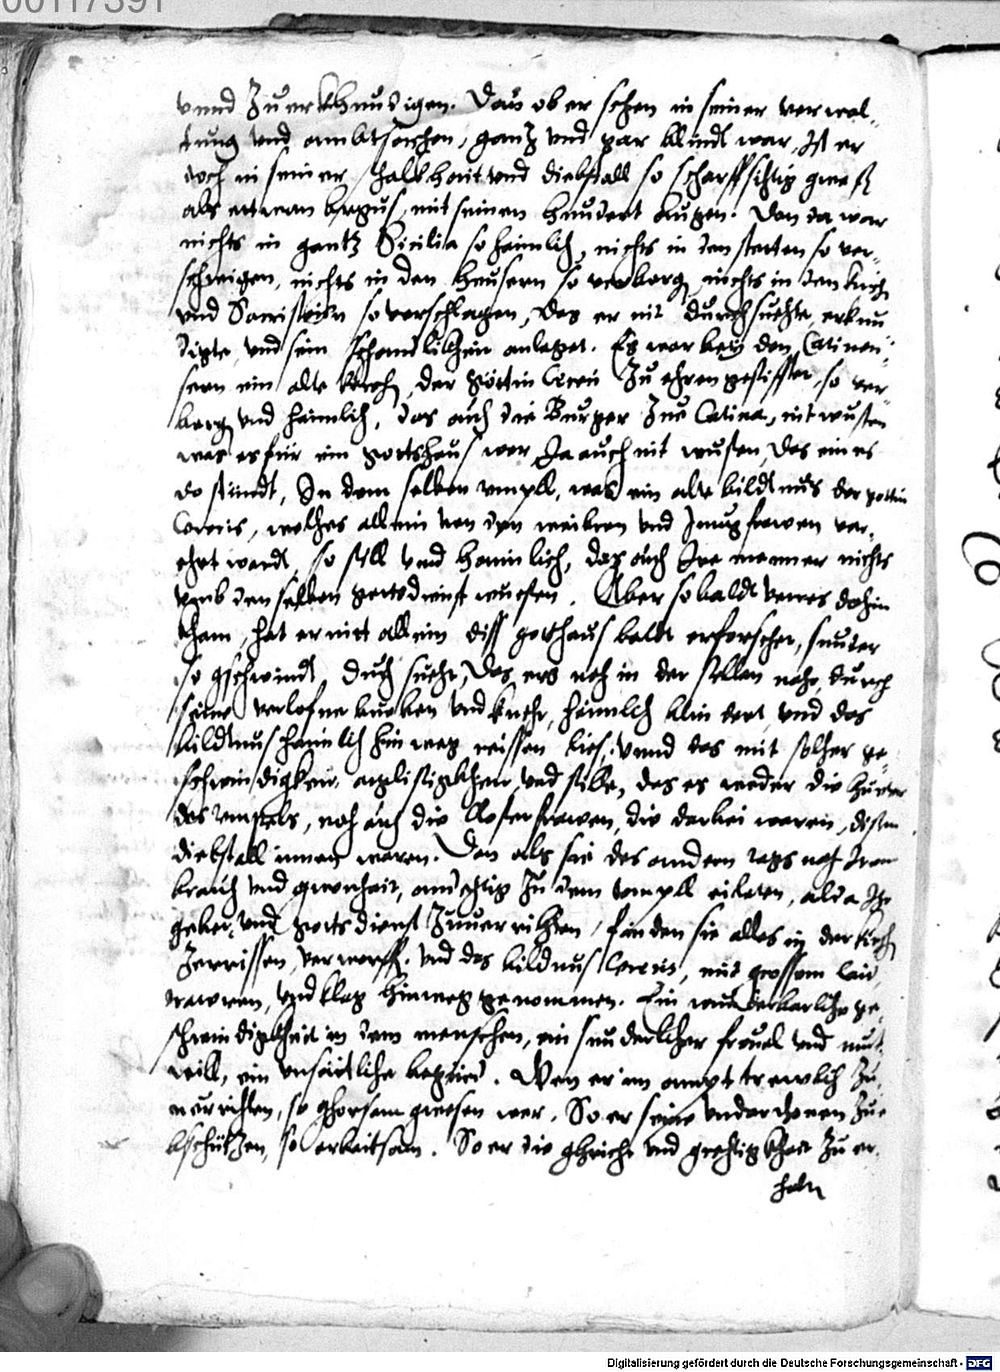 00117391
vnnd zu erkhundigen. Dan ob er schon in seiner verwal-
tung vnd ambtsachen, gantz vnd gar blindt war, Ist er
doch in seiner falschheit vnd diebstall so scharffsichtig gwest
als etwan Argus mit seinen hundert augen. Dan da war
nichts in gantz Sicilia so heimlich, nichts in den stetten so ver-
schwigen, nichts in den heusern so verborg, nichts in den kirch
vnd Sacristein so verschlagen, das er nit durchsuchte, erkun
digte, vnd sein schandlichein anleget. Es war bey den Catinen-
sern ein alte kirch, der göttin Cereri zu ehren gestifftet, so ver
borg vnd heimlich, das auch die Burger zue Catina, nit wusten
was es für ein gottshaus wer, Ja auch nit wusten, das eines
do stündt, In dem selben templ, was ein alte bildtnus der gottin
Cereris, welches allein von den weibern vnd Jungfrawen ver-
ehrt wardt, so still vnd heimlich, das auch Ire menner nichts
vmb denselben gottsdienst wuesten. Aber sobaldt Verres dahin
kham, hat er nitt allein diss gotthaus baldt erforschet, sunder
so gschwindt durchsucht, das ers noch in der selben nacht, durch
seine verlofne bueben vnd knecht, heimlich blindert, vnd das
bildtnus heimlich hinweg reissen lies, vnnd das mit solcher ge-
schwindigkeit, arglistigkheit, vnd stille, das es weder die hüeter
des tempels, noch auch die Closterfrawen, die darbei waren, disen
diebstall innen waren. Dan als sie des andern tags nach Irem
brauch vnd gwonheit, andechtig zu dem templ eileten, alda Ir
gebet, vnd gotts dienst zuuerrichten, fanden sie alles in der kirch
zerrissen, verworffen. vnd das bildnus Cereris, mit grossem laid,
trawren, vnd klag hinweg genommen. Ein wunderbarliche ge-
schwindigkheit in dem menschen, ein sunderlicher freuel vnd mut-
will, ein vnsätliche begierd. Wen er im ampt trewlich zu
uerrichten, so ghorsam gwesen wer. So er seine vnderthonen zue
bschützen, so arbeitsam. So er die ghricht vnd grechtigkheit zu er-
haltn
Digitalisierung gefördert durch die Deutsche Forschungsgemeinschaft - DFG